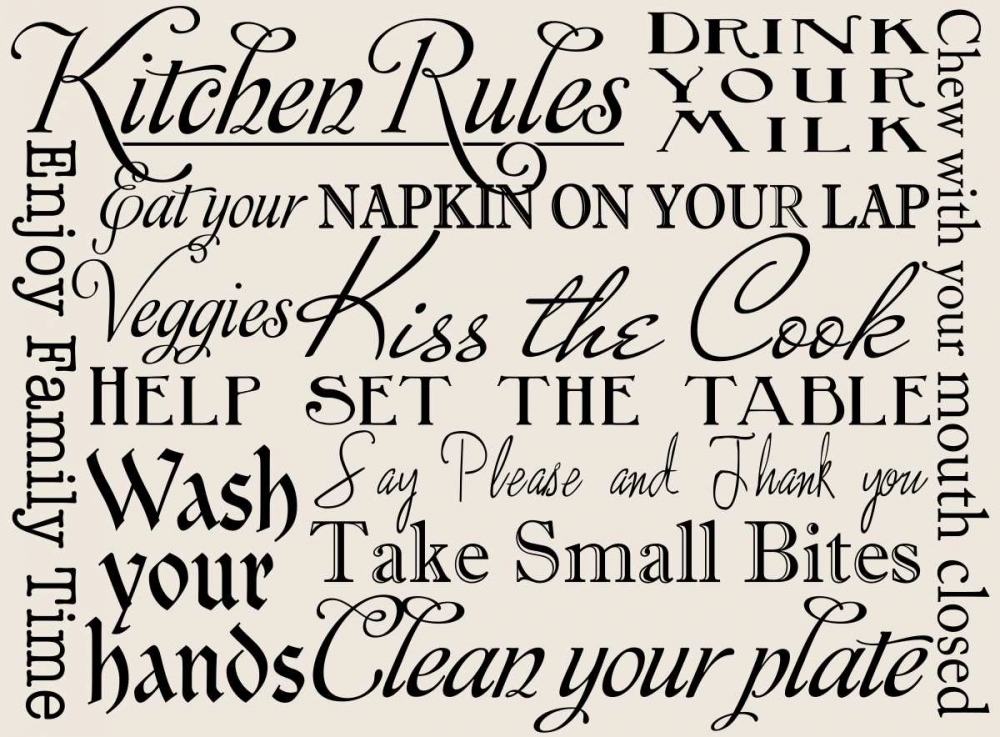 Kitchen Rules
DRINK
YOUR
MILK
Eat your
Veggies
NAPKIN ON YOUR LAP
Kiss the Cook
HELP SET THE TABLE
Wash
your
hands
Say Please and Thank you
Take Small Bites
Clean your plate
Enjoy Family Time
Chew with your mouth closed